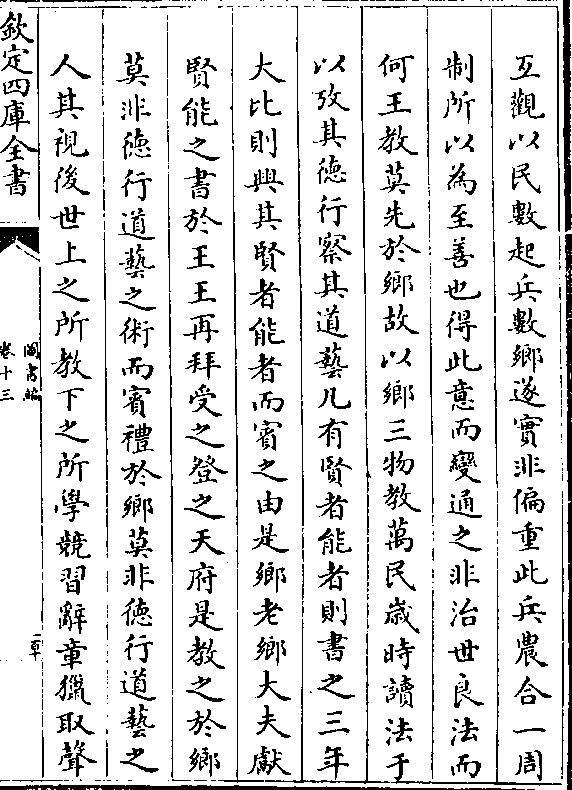 互觀以民數起兵數鄉遂實非偏重此兵農合一周
制所以為至善也得此意而變通之非治世良法而
何王教莫先於鄉故以鄉三物教萬民歲時讀法于
以攷其徳行察其道藝凡有賢者能者則書之三年
大比則興其賢者能者而賓之由是鄉老鄉大夫獻
賢能之書於王王再拜受之登之天府是教之於鄉
莫非徳行道藝之術而賓禮於鄉莫非徳行道藝之
人其視後世上之所教下之所學競習辭章獵取聲
欽定四庫全書
圖書編
卷十三